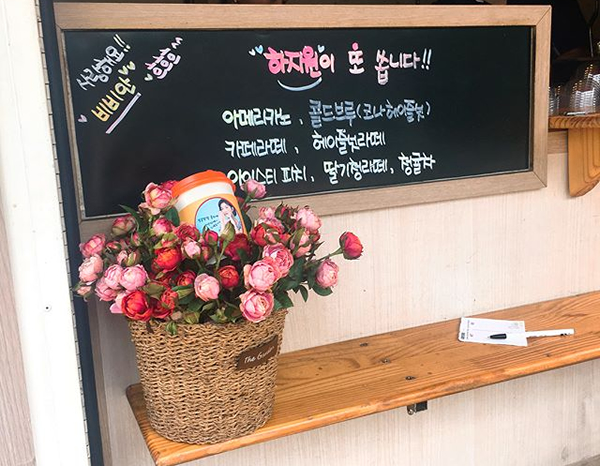 사랑해요!!
비비안
흥흥흥
하지원이 또 쏩니다!!
아메리카노, 콜드브루(코나헤이즐넛)
카페라떼, 헤이즐넛라떼
아이스티 피치, 딸기청라떼, 청귤차
The Garden